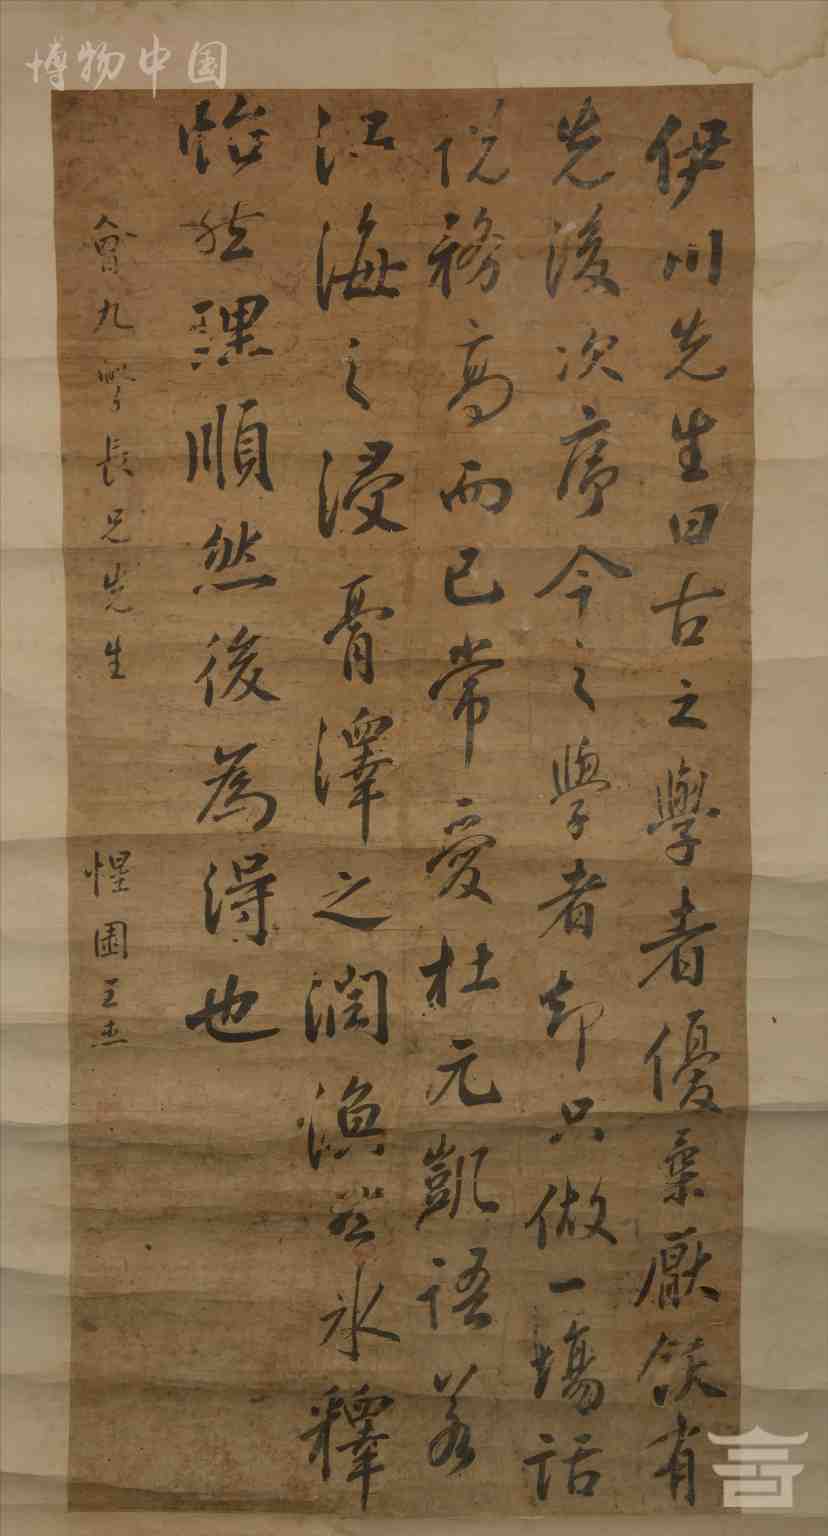 博物中国
伊川先生曰古之學者優柔厭飫有
先後次序今之學者却只做一場話
說務高而已常愛杜元凱語若
江海之浸膏澤之潤渙然冰釋
怡然理順然後為得也
會九學長兄先生
惺園王杰